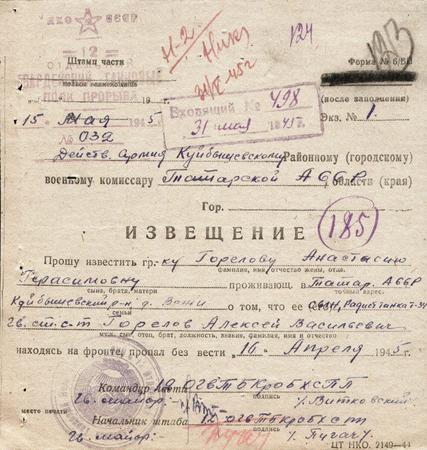 НКО СССР
12
ГВАРДЕЙСКИЙ ТАНКОВЫЙ
ПОЛК ПРОРЫВА
Штамп части
Н-2
124
Форма № 6/БН
(после заполнения)
Экз. № 1.
15 Мая 1945
№ 032
Входящий № 498
31 мая 1945 г.
Действ. армия Куйбышевскому Районному (городскому)
военному комиссару Татарской АССР области (края)
Гор.
185
ИЗВЕЩЕНИЕ
Прошу известить гр-ку Горелову Анастасию
фамилия, имя, отчество жены, отца,
Герасимовну проживающ. в Татар. АССР
сына, брата, матери
точный адрес.
Куйбышевский р-н д. Вожи о том, что ее сын, Радист танка Т-34
семьи
Гв. ст. с-т Горелов Алексей Васильевич
муж, сын, отец, брат, должность, звание, фамилия, имя и отчество
находясь на фронте, пропал без вести 16 Апреля 1945 г.
Командир части 12 ОГВТБКРОБХСТП
подпись
Гв. майор: /. Витковский.
место печати
Начальник штаба 12 ОГВТБКРОБХСТП
подпись
Гв. майор: /. Пугач/.
ЦТ НКО. 2149-44